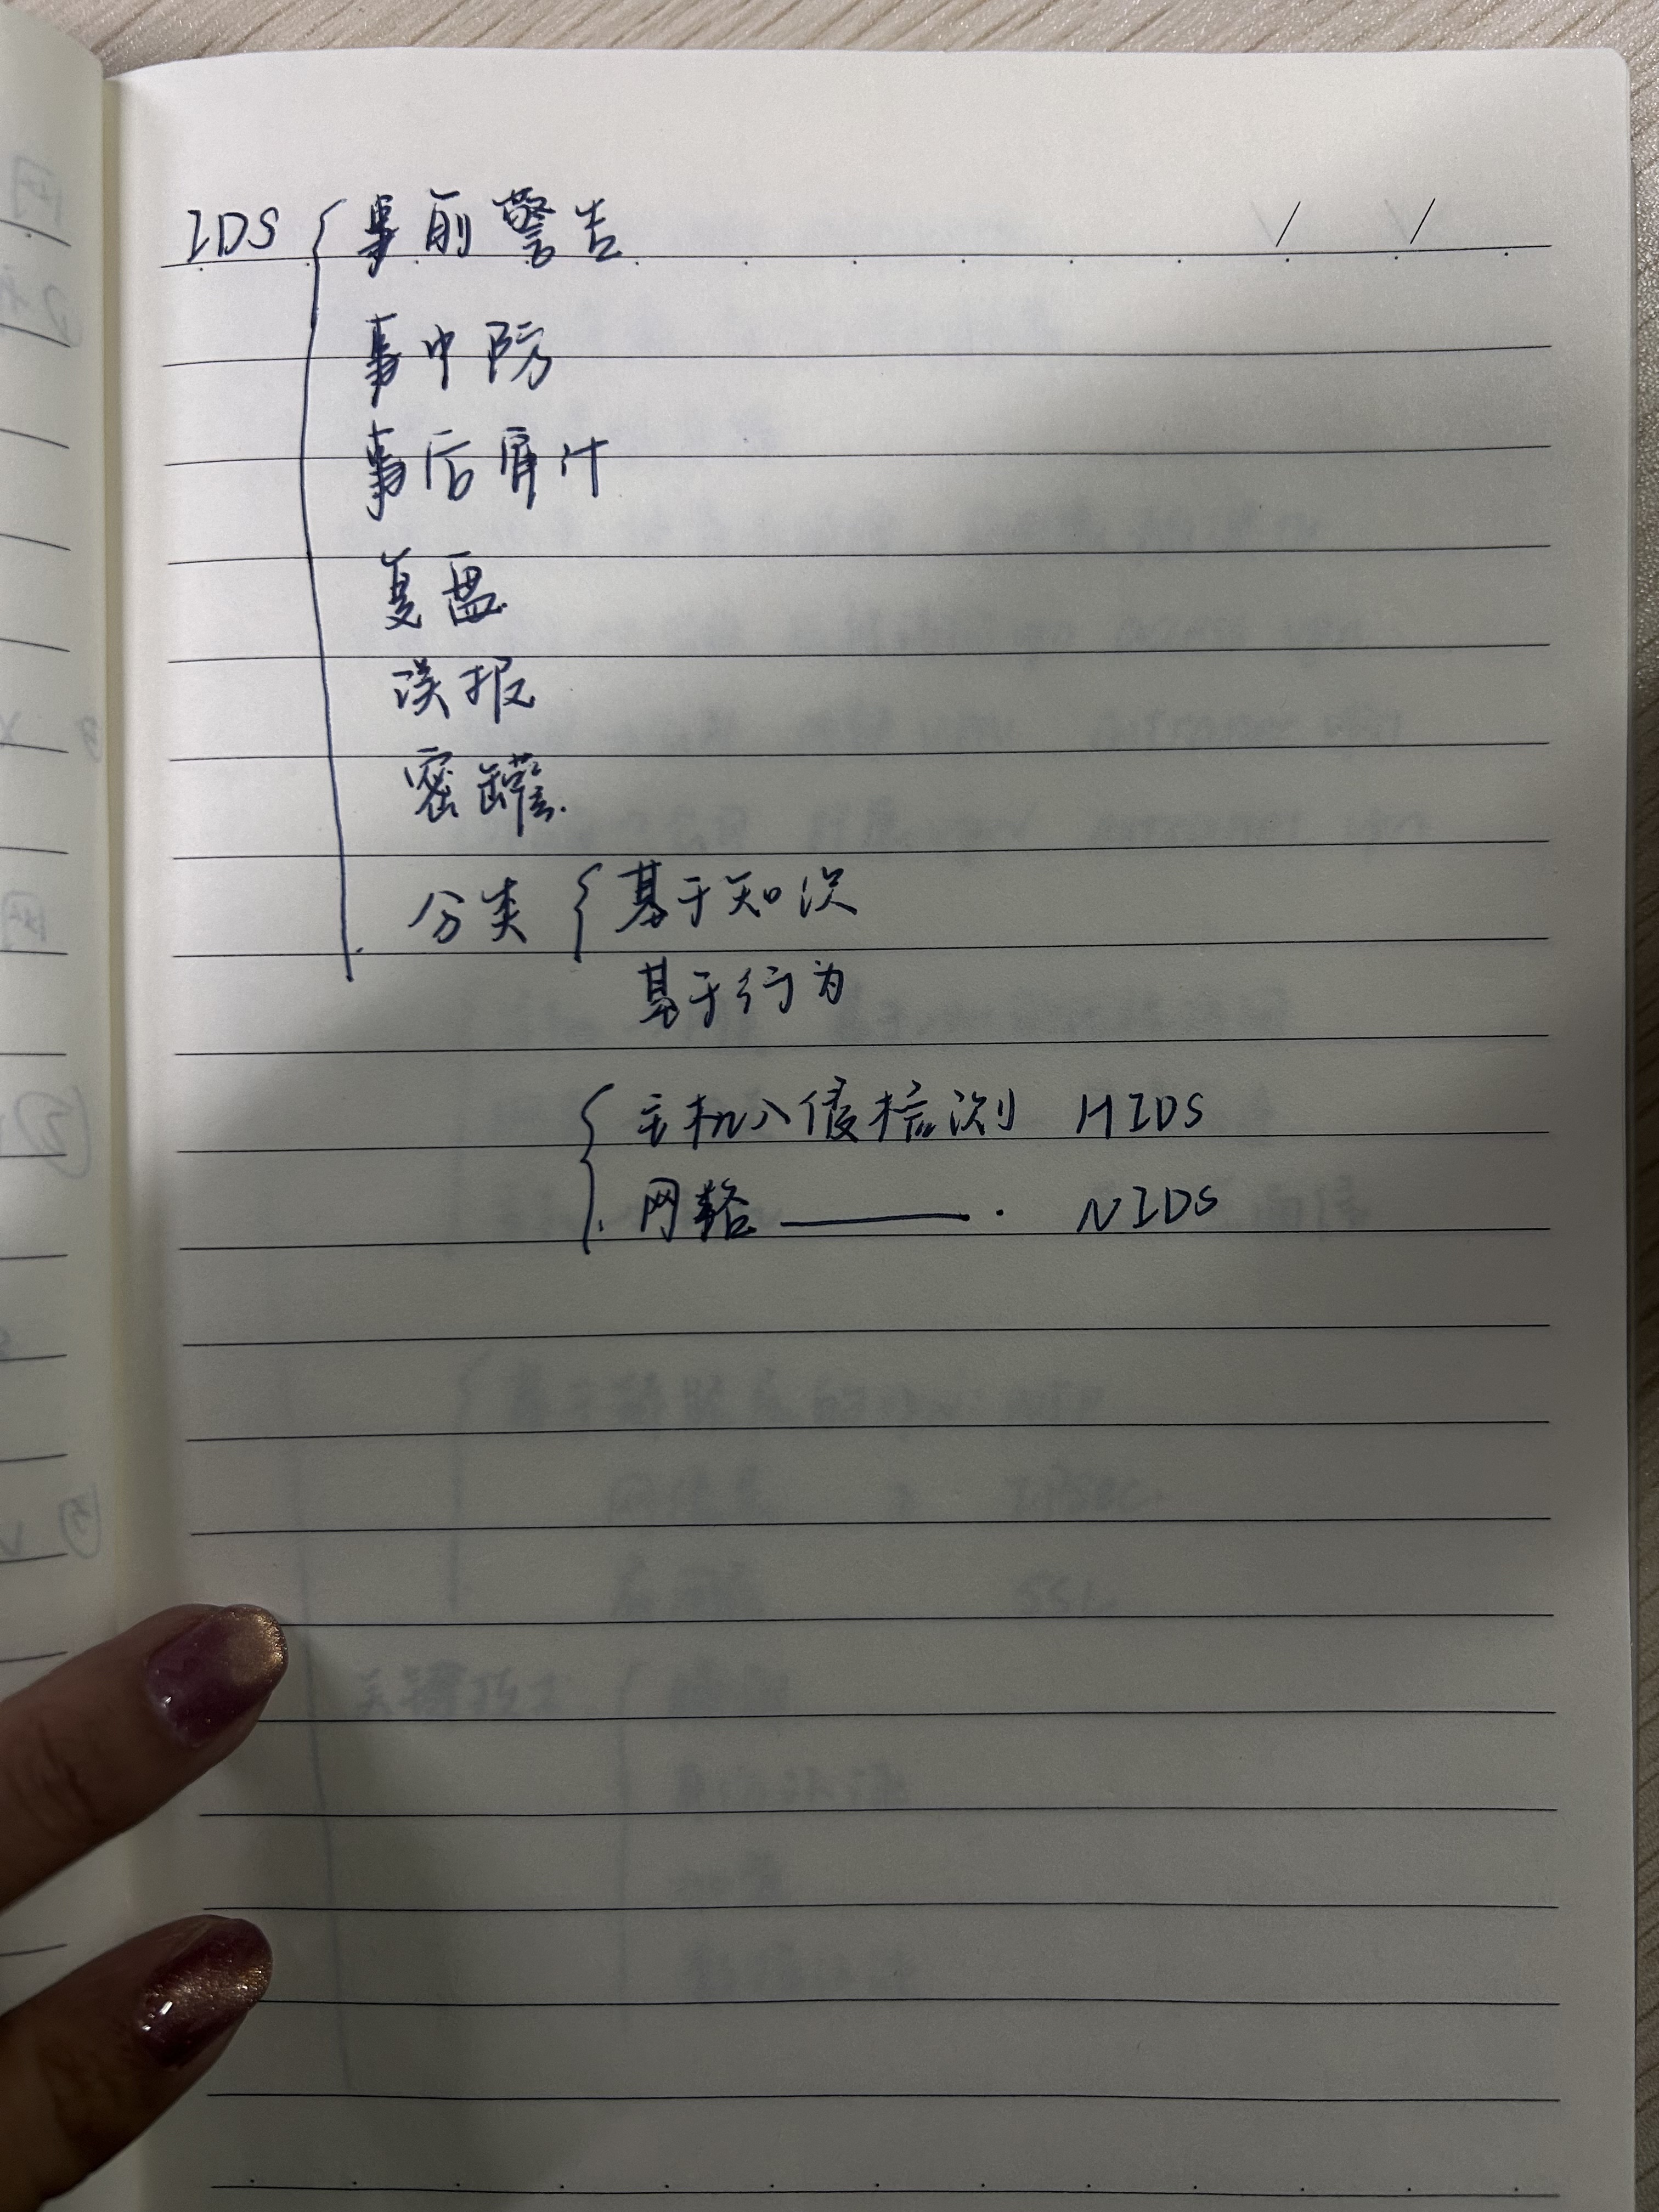 IDS { 事前警告
事中防
事后审计
复盘
误报
密罐
分类 { 基于知识
基于行为
{ 主机入侵检测 HIDS
网络 ——— . NIDS